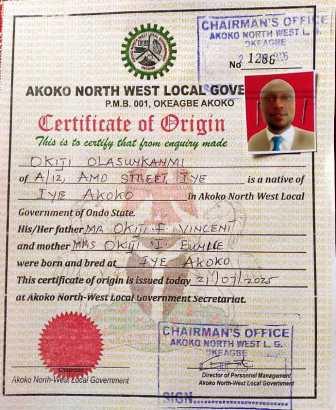 CHAIRMAN'S OFFICE
AKOKO NORTH WEST L. G.
OKEAGBE
No 1286
AKOKO NORTH WEST LOCAL GOVE
P.M.B. 001, OKEAGBE AKOKO
Certificate of Origin
This is to certify that from enquiry made
OKITI OLASUNKANMI
of A/12, AMO STREET, IYE is a native of
IYE AKOKO in Akoko North West Local
Government of Ondo State.
His/Her father MR OKITI F VINCENT
and mother MRS OKITI I EUNICE
were born and bred at IYE AKOKO
This certificate of origin is issued today 21/07/2025
at Akoko North-West Local Government Secretariat.
CHAIRMAN'S OFFICE
AKOKO NORTH WEST L. G.
OKEAGBE
Chairman
Akoko North-West Local Government
Director of Personnel Management
Akoko North-West Local Government
SIGN